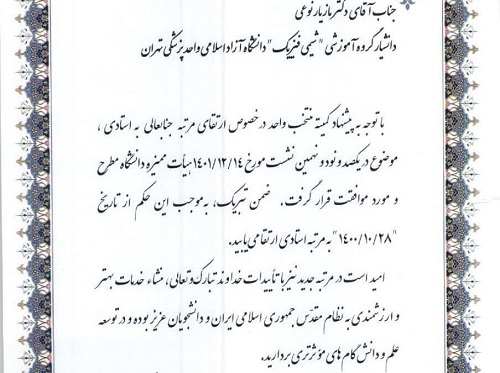 جناب آقای دکتر مازیار نوعی
دانشیار گروه آموزشی "شیمی فیزیک" دانشگاه آزاد اسلامی واحد پزشکی تهران
با توجه به پیشنهاد کمیته منتخب واحد درخصوص ارتقای مرتبه جنابعالی به استادی ،
موضوع در یکصد و نود و نهمین نشست مورخ ۱۴۰۱/۱۲/۱۴ هیأت ممیزه دانشگاه مطرح
و مورد موافقت قرار گرفت. ضمن تبریک، به موجب این حکم از تاریخ
"۱۴۰۰/۱۰/۲۸" به مرتبه استادی ارتقا می یابید.
امید است در مرتبه جدید نیز با تأییدات خداوند تبارک و تعالی، منشاء خدمات بهتر
و ارزشمندی به نظام مقدس جمهوری اسلامی ایران و دانشجویان عزیز بوده و در توسعه
علم و دانش گام های مؤثرتری بردارید.